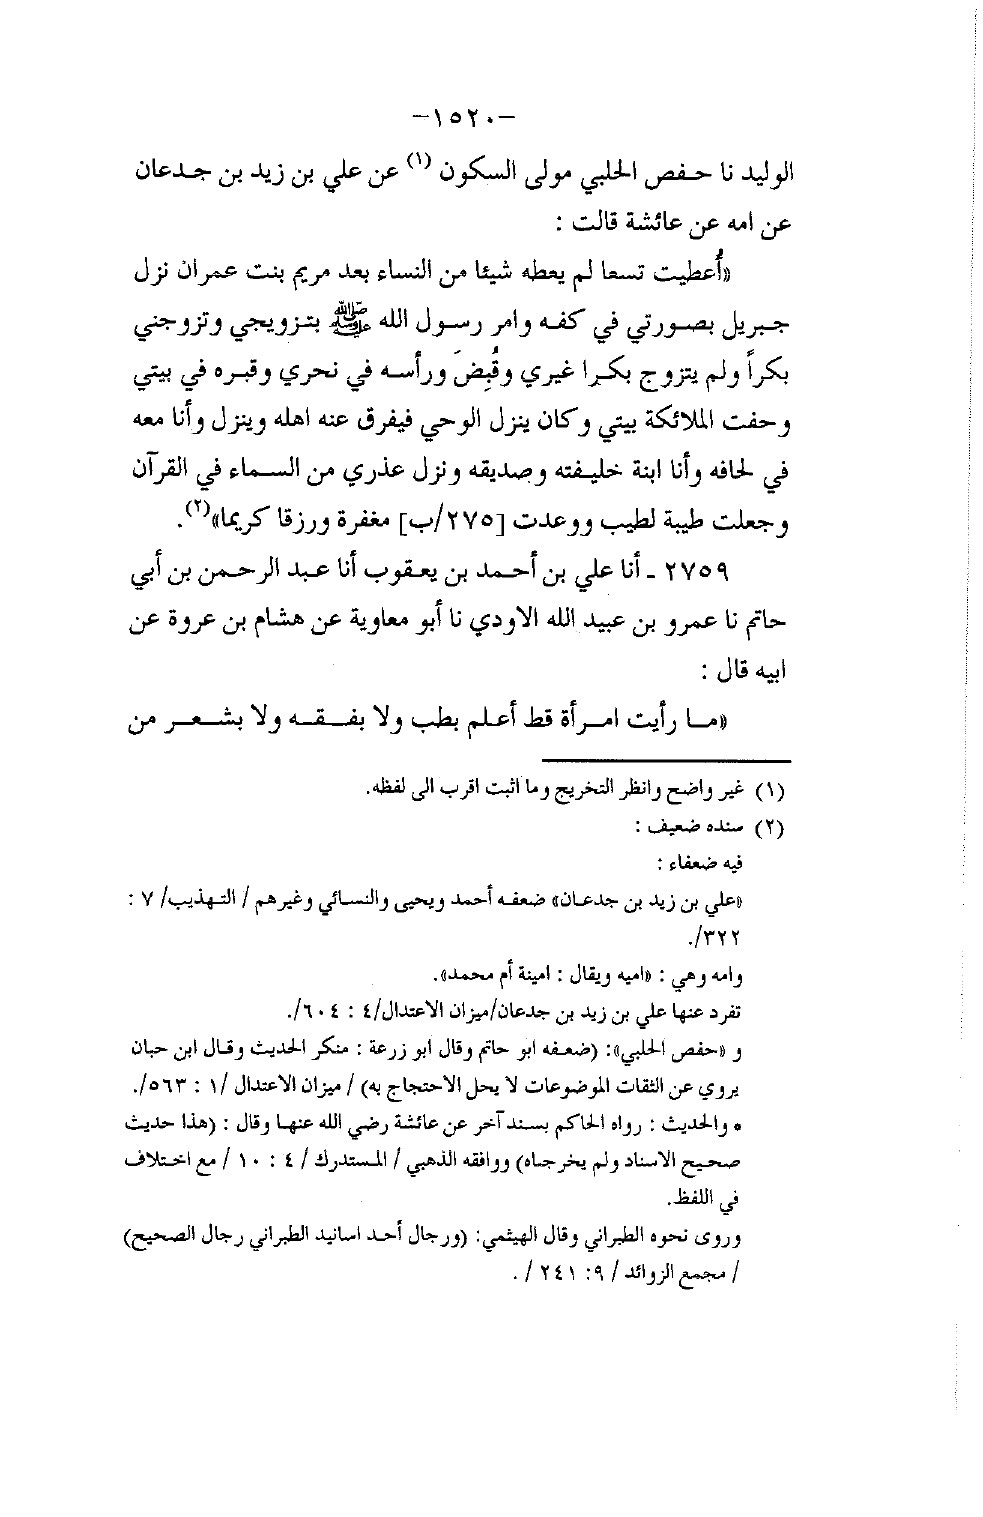 -١٥٢٠-
الوليد نا حفص الحلبي مولى السكون (١) عن علي بن زيد بن جدعان
عن امه عن عائشة قالت :
«أُعطيت تسعا لم يعطه شيئا من النساء بعد مريم بنت عمران نزل
جبريل بصورتي في كفه وامر رسول الله ﷺ بتزويجي وتزوجني
بكراً ولم يتزوج بكرا غيري وقُبِضَ ورأسه في نحري وقبره في بيتي
وحفت الملائكة بيتي وكان ينزل الوحي فيفرق عنه اهله وينزل وأنا معه
في لحافه وأنا ابنة خليفته وصديقه ونزل عذري من السماء في القرآن
وجعلت طيبة لطيب ووعدت [٢٧٥/ب] مغفرة ورزقا كريما»(٢).
٢٧٥٩ ـ أنا علي بن أحمد بن يعقوب أنا عبد الرحمن بن أبي
حاتم نا عمرو بن عبيد الله الاودي نا أبو معاوية عن هشام بن عروة عن
ابيه قال :
«ما رأيت امرأة قط أعلم بطب ولا بفقه ولا بشعر من
(١) غير واضح وانظر التخريج وما اثبت اقرب الى لفظه.
(٢) سنده ضعيف :
فيه ضعفاء :
«علي بن زيد بن جدعان» ضعفه أحمد ويحيى والنسائي وغيرهم / التهذيب/ ٧ :
٣٢٢/.
وامه وهي : «اميه ويقال : امينة أم محمد».
تفرد عنها علي بن زيد بن جدعان/ميزان الاعتدال/٤ : ٦٠٤/.
و «حفص الحلبي»: (ضعفه ابو حاتم وقال ابو زرعة : منكر الحديث وقال ابن حبان
يروي عن الثقات الموضوعات لا يحل الاحتجاج به) / ميزان الاعتدال /١ : ٥٦٣/.
• والحديث : رواه الحاكم بسند آخر عن عائشة رضي الله عنها وقال : (هذا حديث
صحيح الاسناد ولم يخرجاه) ووافقه الذهبي / المستدرك / ٤ : ١٠ / مع اختلاف
في اللفظ.
وروى نحوه الطبراني وقال الهيثمي: (ورجال أحد اسانيد الطبراني رجال الصحيح)
/ مجمع الزوائد / ٩: ٢٤١ / .